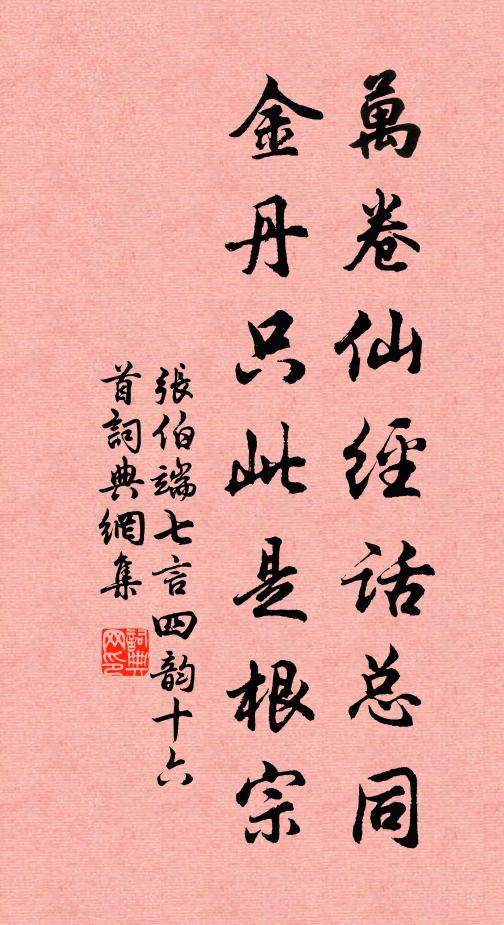 萬卷仙經話总同
金丹只此是根宗
張伯端七言四韵十六
首詞典網集
詞典网印